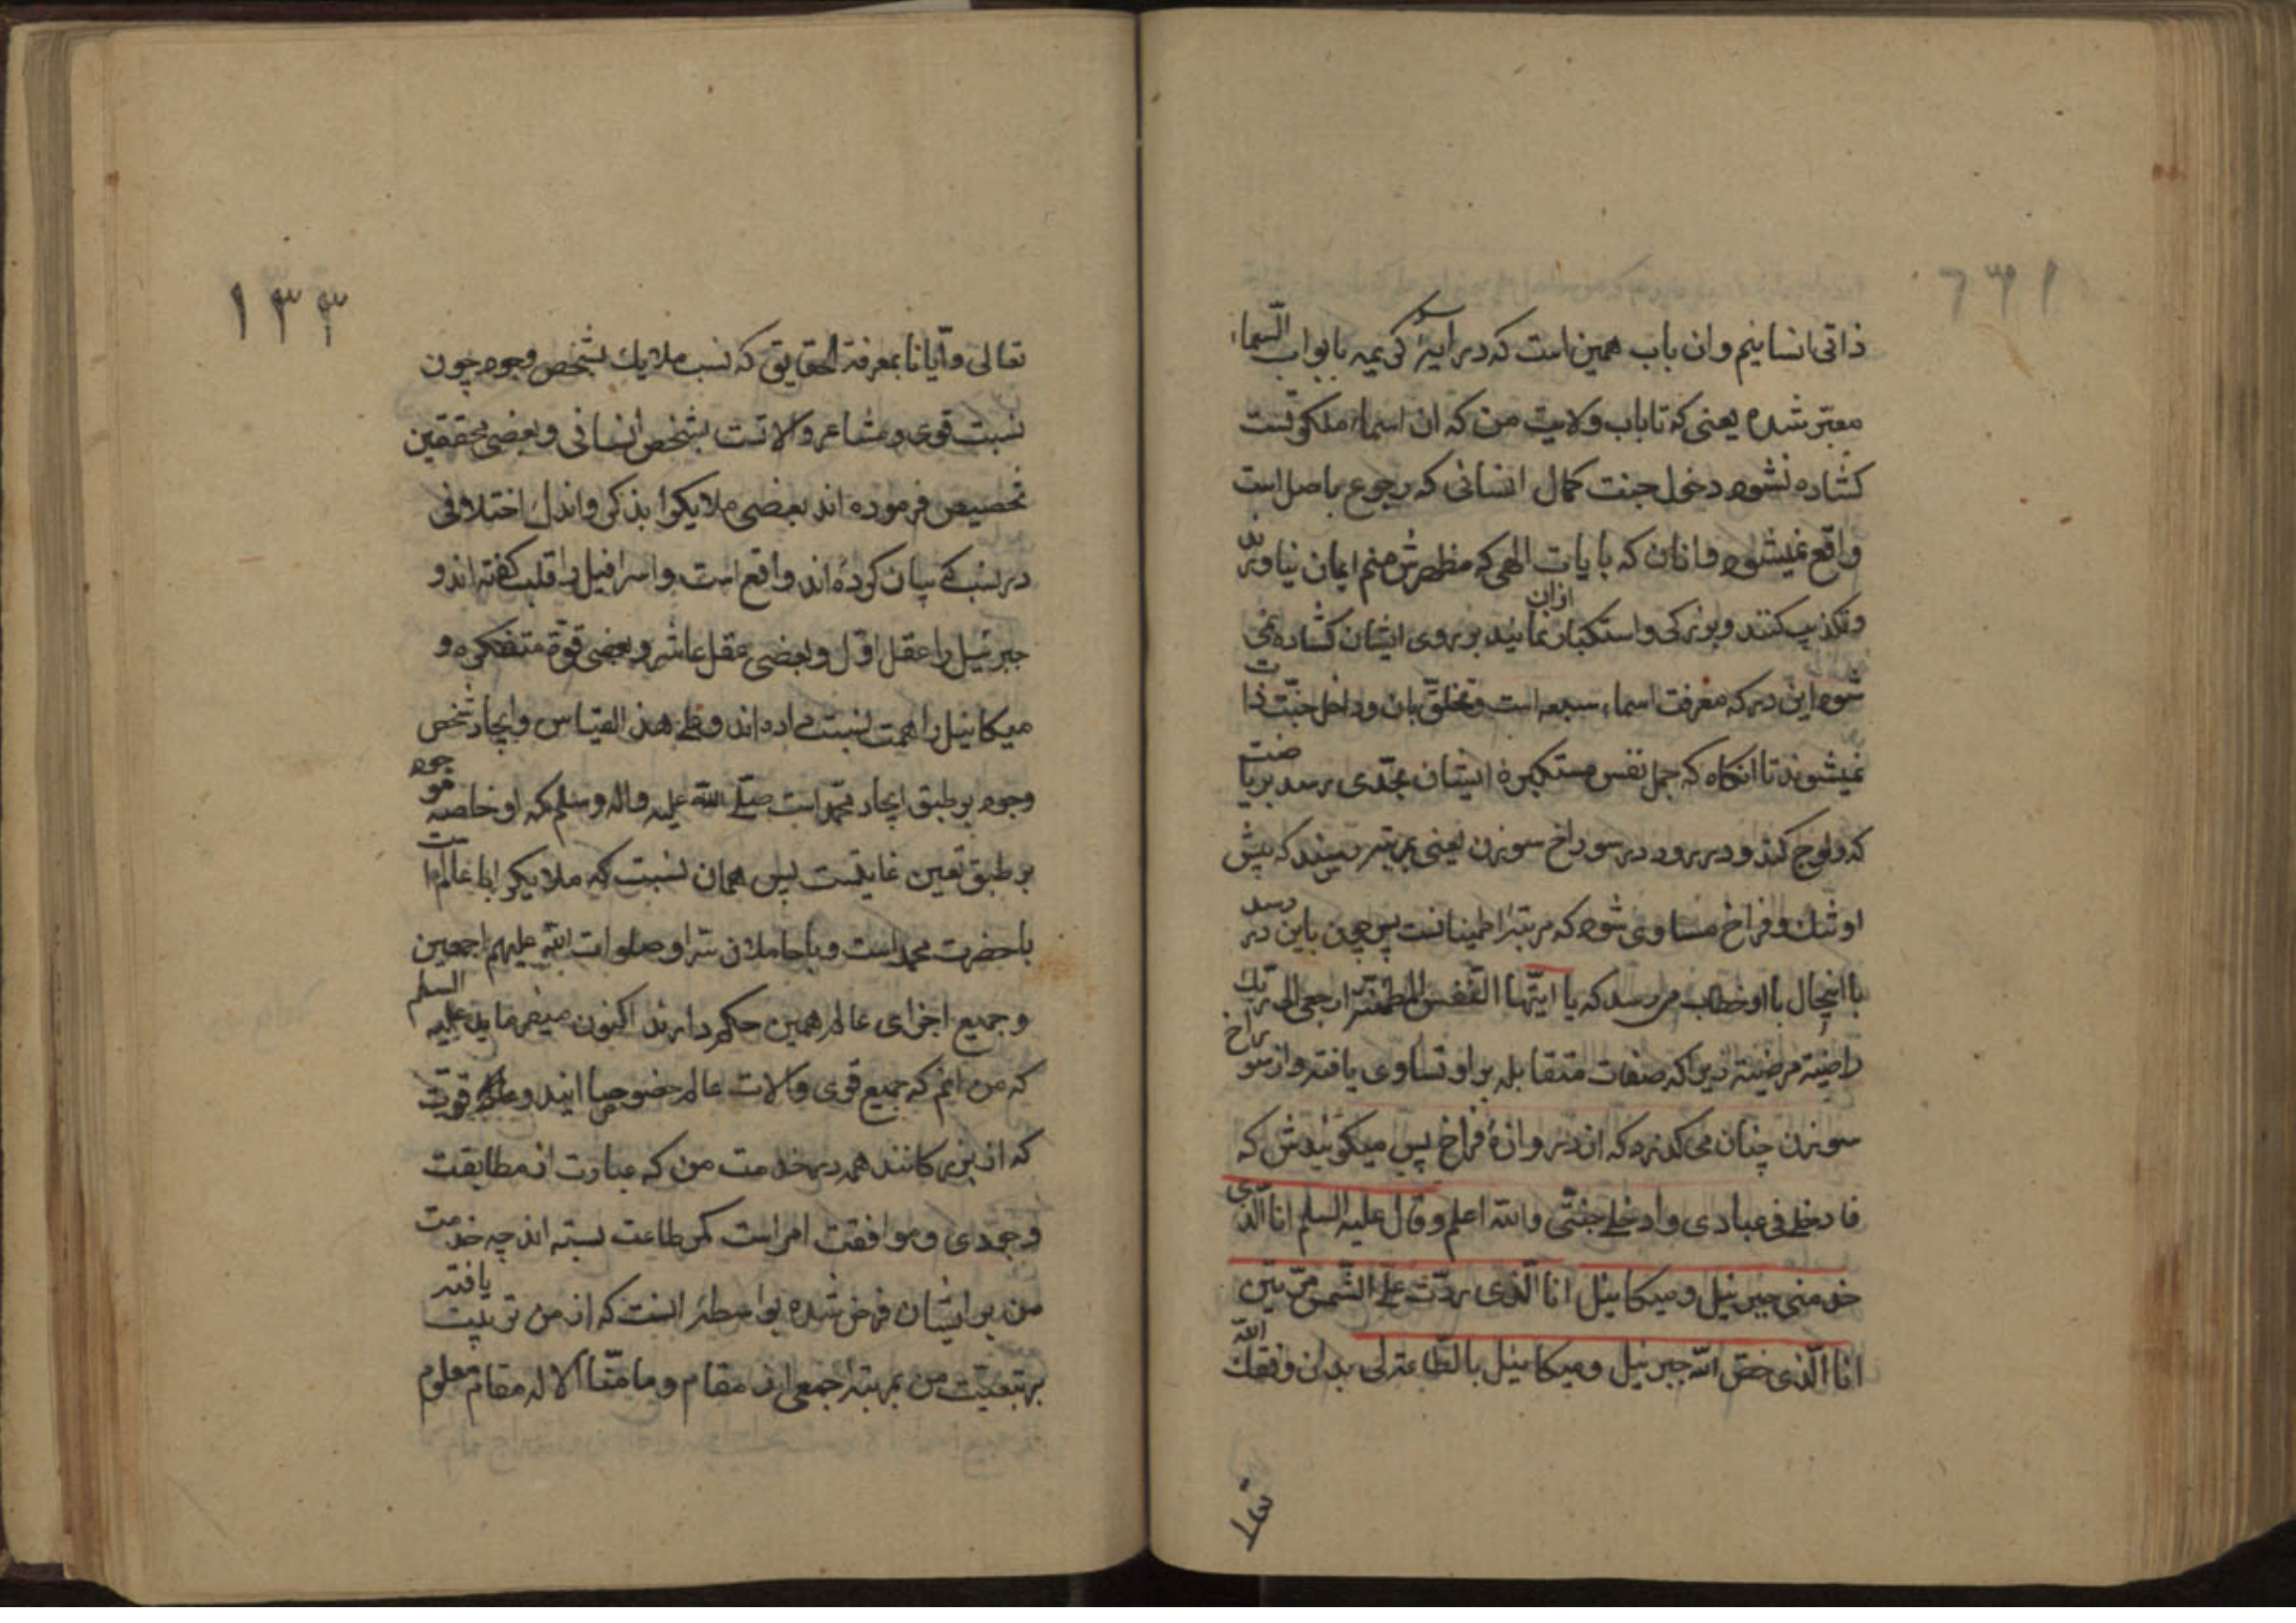 ذاتی انسانیم وان باب همین است که در آیهٔ کریمه بابواب السماء
معبّر شده یعنی که تا باب ولایت من که ان اسماء ملکوتست
کشاده نشود دخول جنت کمال انسانی که رجوع باصل است
واقع نمیشود و انان که بایات الهی که مظهرش منم ایمان نیاورند
وتکذیب کنند و بزرکی و استکبار ازان نمایند بر روی ایشان کشاده نمی
شود این در که معرفت اسماء سبعه است وتخلّق بان و داخل جنّت ذات
نمیشوند تا انکاه که جمل نفس مستکبرهٔ ایشان بحدّی رسد بریاضت
که ولوج کند و در رود در سوراخ سوزن یعنی بمرتبه رسند که پیش
او تنک و فراخ مساوی شود که مرتبهٔ اطمینانست پس چون باین در رسد
با انحال بااو خطاب می رسد که یا ایّتها النّفس المطمئنّة ارجعی الی ربّک
راضیة مرضیة زیرا که صفات متقابله بر او تساوی یافته واز سوراخ
سوزن چنان می کذرد که از دروازهٔ فراخ پس میکویندش که
فادخلی فی عبادی وادخلی جنّتی والله اعلم وقال علیه السلم انا الّذی
خدمنی جبرئیل ومیکائیل انا الّذی ردّت علیّ الشّمس مرّتین
انا الّذی خصّ الله جبرئیل ومیکائیل بالطّاعة لی بدان وفقک الله
تعا
۱۳۳
تعالی وایانا بمعرفة الحقایق که نسب ملایک بشخص وجود چون
نسبت قوی ومشاعر والاتست بشخص انسانی وبعضی محققین
تخصیص فرموده اند بعضی ملایکرا بذکر واندک اختلافی
در نسب که بیان کرده اند واقع است واسرافیل را قلب کفته اند و
جبرئیل را عقل اوّل وبعضی عقل عاشر وبعضی قوّة متفکره و
میکائیل را همت نسبت داده اند وعلی هذ القیاس وایجاد شخص
وجود بر طبق ایجاد محمّد است صلّی الله علیه واله وسلم که او خاصه موجود
بر طبق تعین غایتست پس همان نسبت که ملایکرا با عالم است
باحضرت محمد است وباحاملان سرّ او صلوات الله علیهم اجمعین
وجمیع اجزای عالم همین حکم دارند اکنون میفرماید علیه السلم
که من انم که جمیع قوی والات عالم خصوصا ایند وملک قوّت
که از بزرکانند همه در خدمت من که عبارت از مطابقت
وجودی وموافقت امر است کمر طاعت بسته اند چه خدمت
من بر ایشان فرض شده بواسطهٔ انست که از من تربیت یافته
بتبعیت من بمرتبهٔ جمعی از مقام وما منّا الا له مقام معلوم